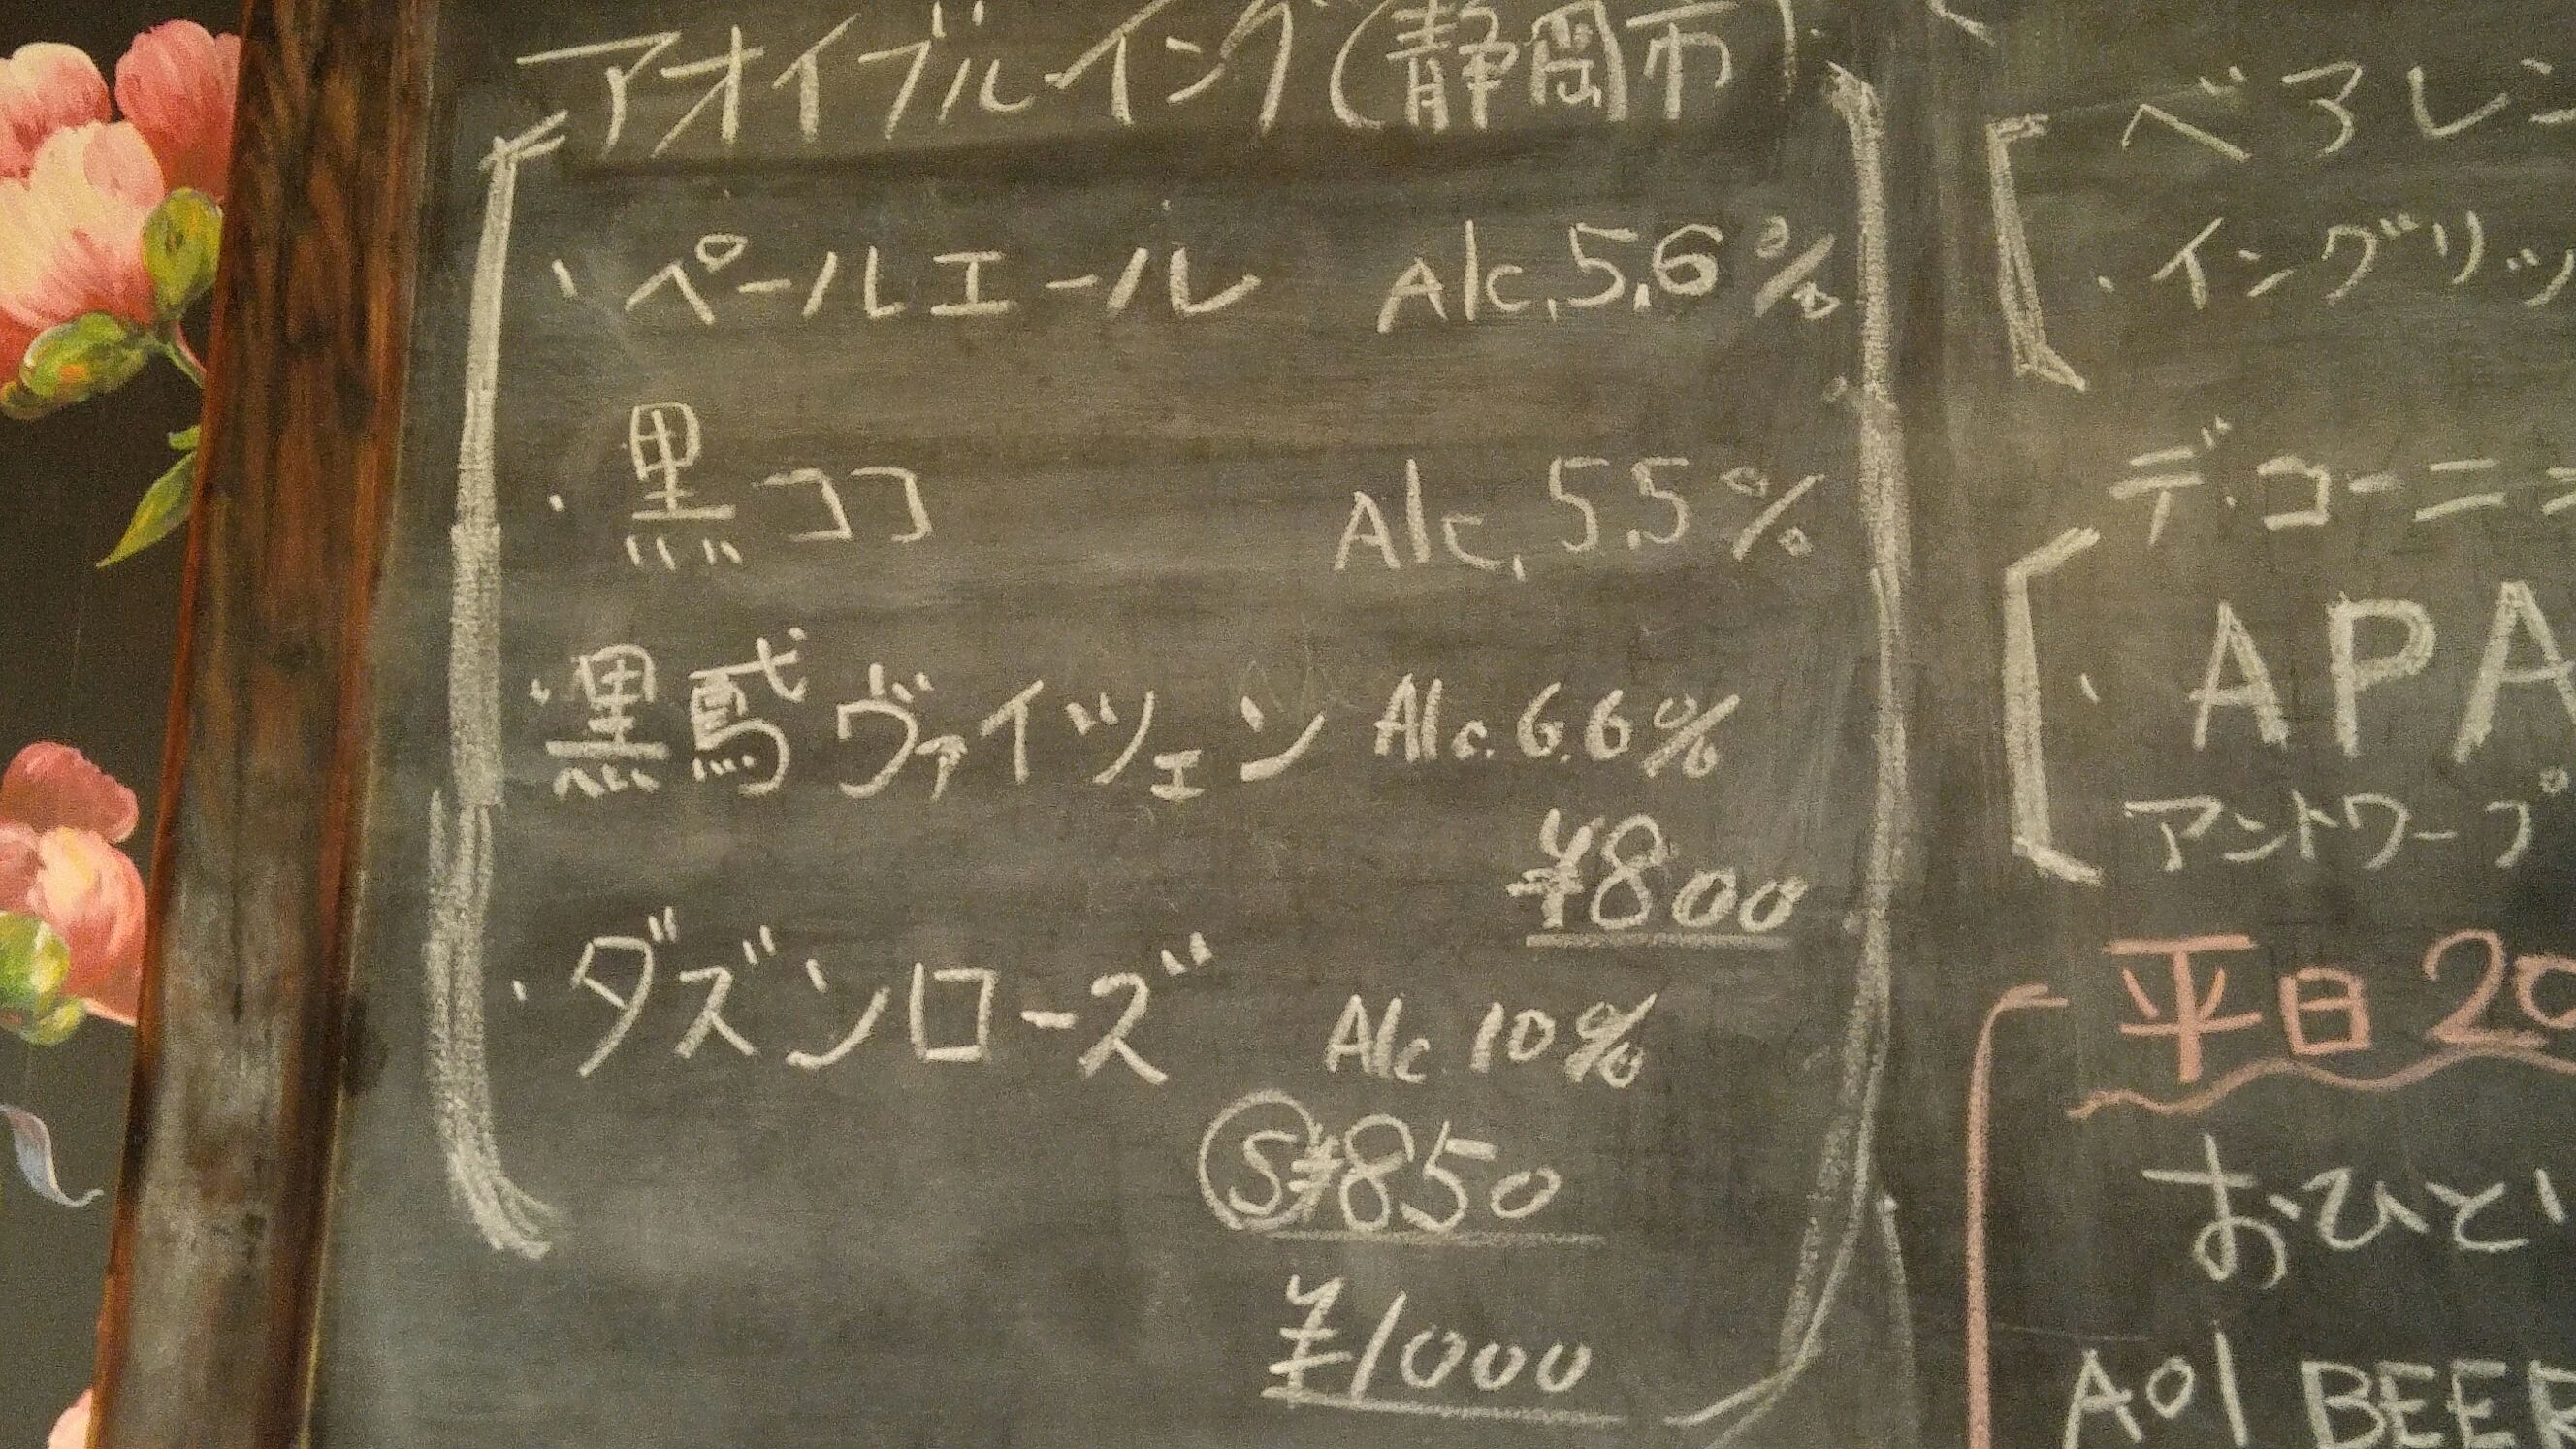 アオイブルーイング(静岡市)
・ペールエール Alc.5.6%
・黒ココ Alc.5.5%
・黒鳶ヴァイツェン Alc.6.6%
¥800
・ダズンローズ Alc.10%
Ⓢ¥850
¥1000
ベアレン
・イングリッ
デ・コーニ
・APA
アントワープ
平日20
おひと
AOI BEER